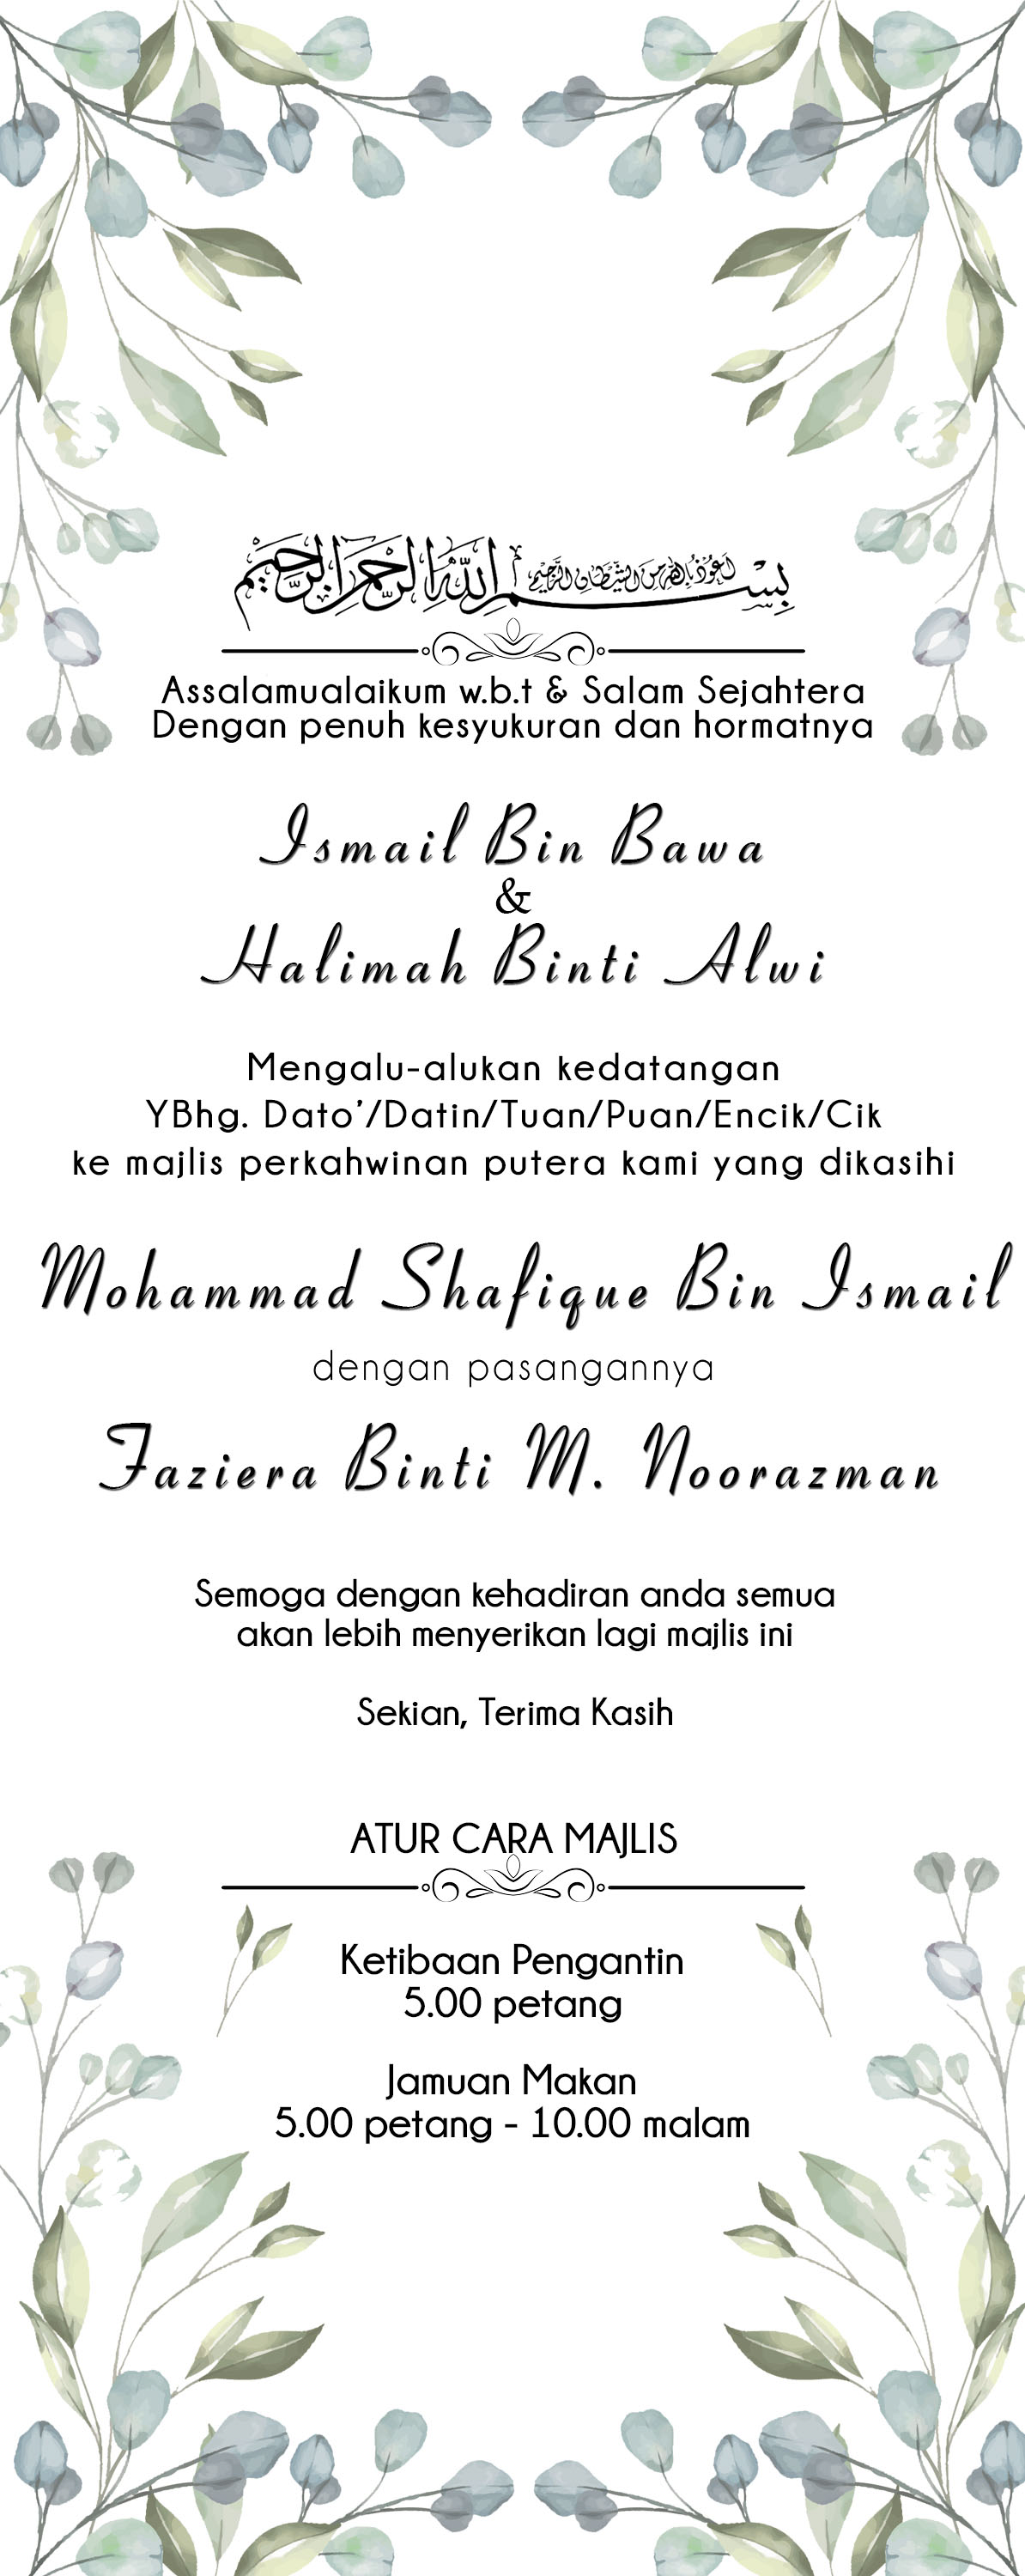 أعوذ بالله من الشيطان الرجيم
بسم الله الرحمن الرحيم
Assalamualaikum w.b.t & Salam Sejahtera
Dengan penuh kesyukuran dan hormatnya
Ismail Bin Bawa
&
Halimah Binti Alwi
Mengalu-alukan kedatangan
YBhg. Dato'/Datin/Tuan/Puan/Encik/Cik
ke majlis perkahwinan putera kami yang dikasihi
Mohammad Shafique Bin Ismail
dengan pasangannya
Faziera Binti M. Noorazman
Semoga dengan kehadiran anda semua
akan lebih menyerikan lagi majlis ini
Sekian, Terima Kasih
ATUR CARA MAJLIS
Ketibaan Pengantin
5.00 petang
Jamuan Makan
5.00 petang - 10.00 malam